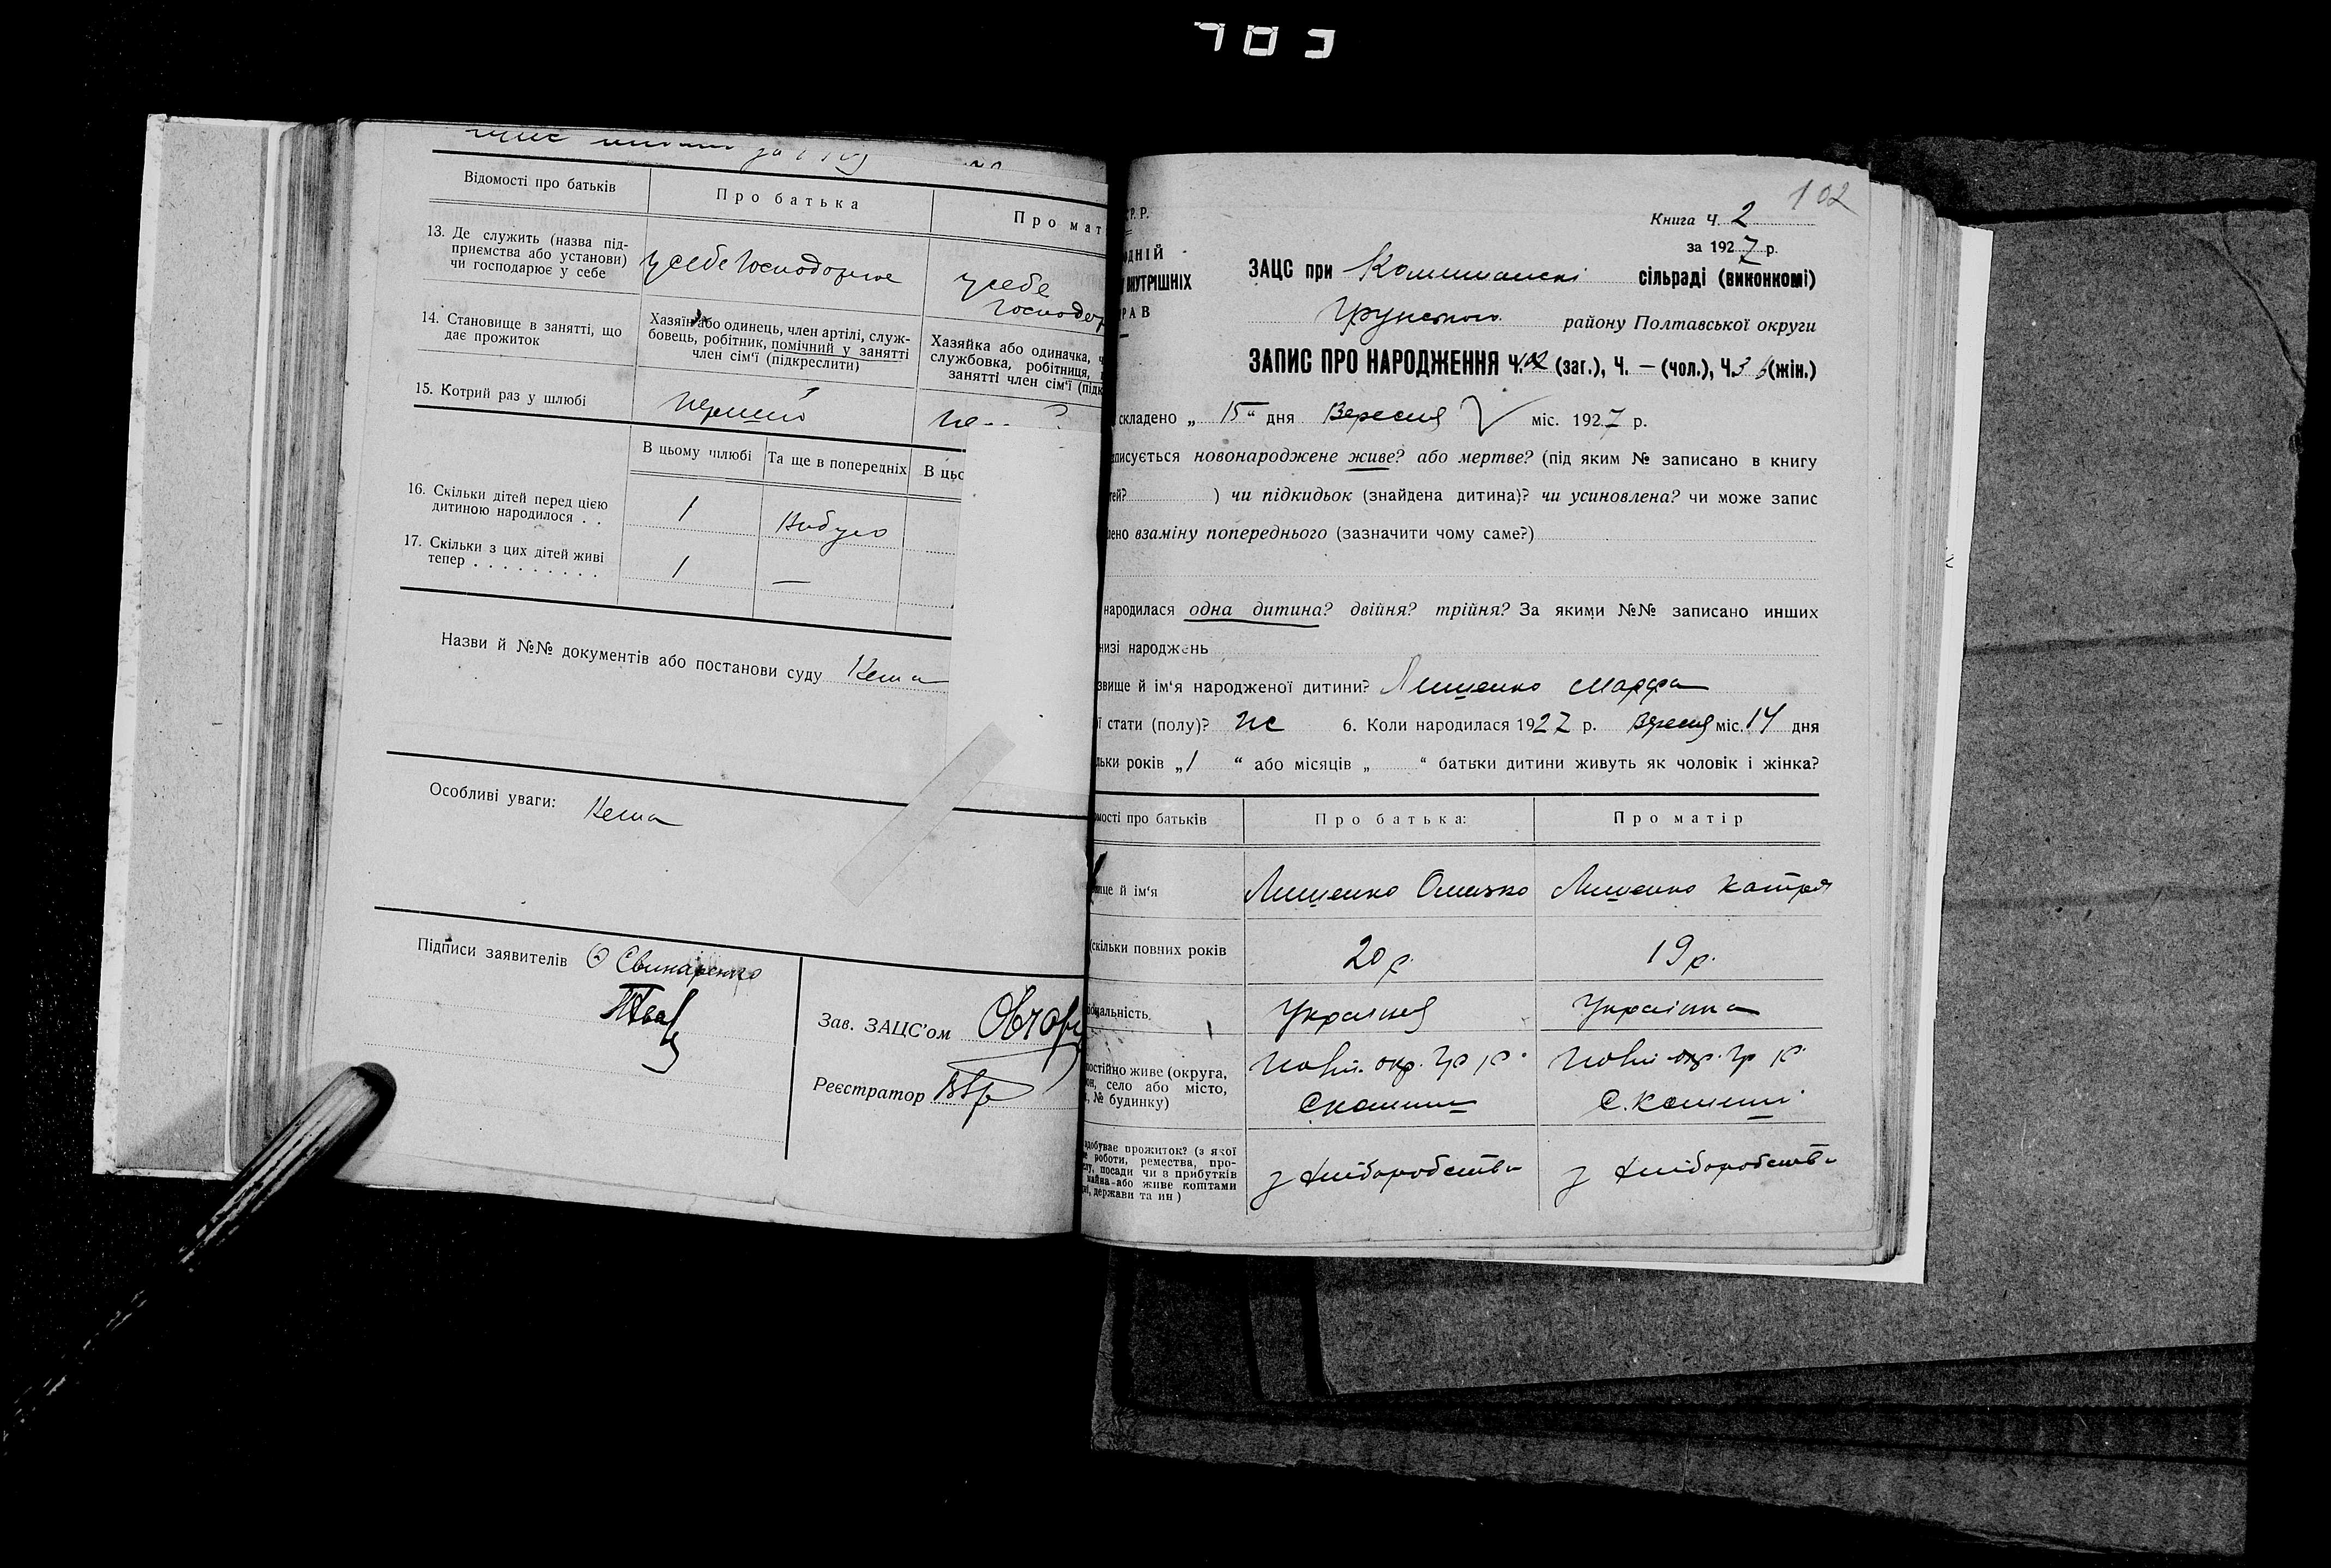 Відомості про батьків
Про батька
Про мат
13. Де служить (назва під-
приємства або установи)
чи господарює у себе
у себе
у себе
14. Становище в занятті, що
дає прожиток
Хазяїн або одинець, член артілі, служ-
бовець, робітник, помічний у занятті
член сім'ї (підкреслити)
Хазяйка або одиначка, ч
службовка, робітниця, п
занятті член сім'ї (підк
15. Котрий раз у шлюбі
перший
В цьому шлюбі
Та ще в попередніх
В цьо
16. Скільки дітей перед цією
дитиною народилося . .
1
Небуло
17. Скільки з цих дітей живі
тепер . . . . . . . . .
1
—
Назви й №№ документів або постанови суду Нема
Особливі уваги: Нема
Підписи заявителів О Свинаренко
Зав. ЗАЦС'ом
Реєстратор
102
Р. Р.
ОДНІЙ
ВНУТРІШНІХ
РАВ
Книга ч. 2
за 1927 р.
ЗАЦС при сільраді (виконкомі)
Грунського району Полтавської округи
ЗАПИС ПРО НАРОДЖЕННЯ Ч. 102 (заг.), Ч. — (чол.), Ч. 36 (жін.)
складено „ 15 “ дня Вересня міс. 1927 р.
писується новонароджене живе? або мертве? (під яким № записано в книгу
тей? ) чи підкидьок (знайдена дитина)? чи усиновлена? чи може запис
лено взаміну попереднього (зазначити чому саме?)
народилася одна дитина? двійня? трійня? За якими №№ записано инших
низі народжень
звище й ім'я народженої дитини? Лишенко Марфа
ї стати (полу)? Жс 6. Коли народилася 1927 р. Вересня міс. 14 дня
льки років „ 1 “ або місяців „ “ батьки дитини живуть як чоловік і жінка?
омості про батьків
Про батька:
Про матір
ище й ім'я
Лишенко Омелько
Лишенко Катря
(скільки повних років
20 р.
19 р.
іональність
Українец
Українка
постійно живе (округа,
он, село або місто,
, № будинку)
Полт. окр. Гр р.
Полт. окр. Гр р.
добуває прожиток? (з якої
е роботи, ремества, про-
лу, посади чи з прибутків
майна або живе коштами
ні, держави та ин)
з хліборобства
з хліборобства